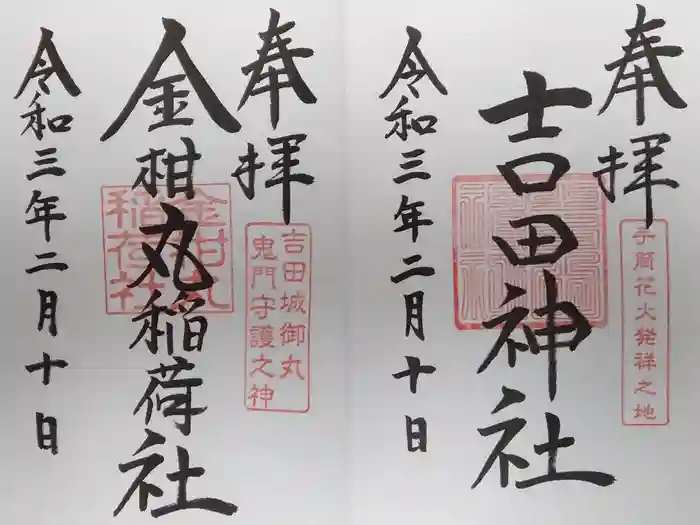 奉拝
吉田神社
手筒花火発祥之地
令和三年二月十日
奉拝
金柑丸稲荷社
金柑丸
稲荷社
吉田城御丸
鬼門守護之神
令和三年二月十日